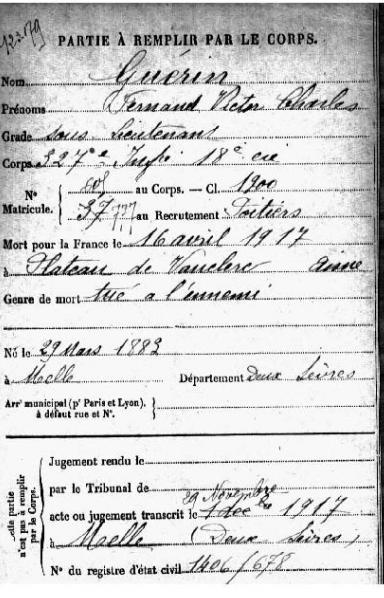 123179
PARTIE À REMPLIR PAR LE CORPS.
Nom Guérin
Prénoms Fernand Victor Charles
Grade sous lieutenant
Corps 327e Infie 18e cie
N° Matricule. { au Corps. — Cl. 1900
au Recrutement Poitiers
Mort pour la France le 16 avril 1917
à Plateau de Vauclerc Aisne
Genre de mort tué à l'ennemi
Né le 29 Mars 1882
à Melle Département Deux Sèvres
Arr' municipal (p' Paris et Lyon).
à défaut rue et N°.
Cette partie n'est pas à remplir par le Corps.
Jugement rendu le
par le Tribunal de
29 Novembre
acte ou jugement transcrit le 1917
à Melle (Deux Sèvres)
N° du registre d'état civil 1406/678